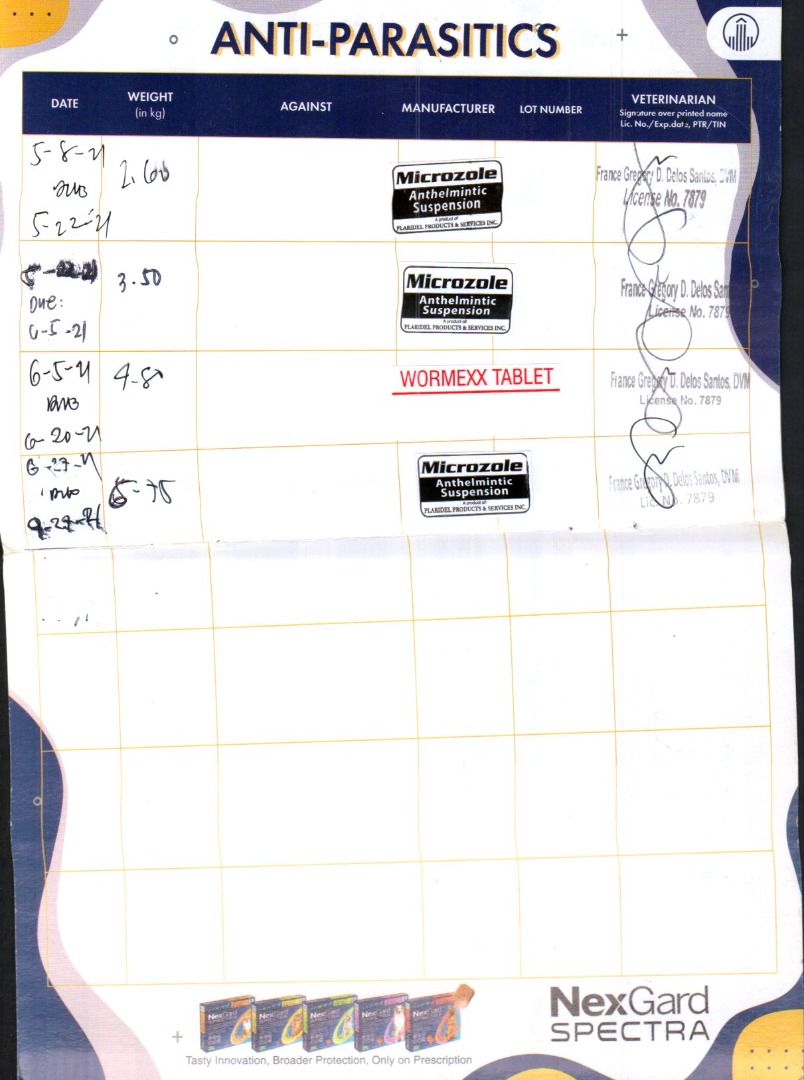 ANTI-PARASITICS
DATE
WEIGHT
(in kg)
AGAINST
MANUFACTURER
LOT NUMBER
VETERINARIAN
Signature over printed name
Lic. No./Exp.date, PTR/TIN
5-8-21
DUE
5-22-21
2.60
Microzole
Anthelmintic
Suspension
A product of:
PLARIDEL PRODUCTS & SERVICES INC.
France Gregory D. Delos Santos, DVM
License No. 7879
5-22-21
Due:
6-5-21
3.50
Microzole
Anthelmintic
Suspension
A product of:
PLARIDEL PRODUCTS & SERVICES INC.
France Gregory D. Delos San
License No. 7879
6-5-21
DUE
6-20-21
4.8
WORMEXX TABLET
France Gregory D. Delos Santos, DVM
License No. 7879
6-27-21
DUE
Microzole
Anthelmintic
Suspension
A product of:
PLARIDEL PRODUCTS & SERVICES INC.
France Gregory D. Delos Santos, DVM
Lic. No. 7879
NexGard
SPECTRA
Tasty Innovation, Broader Protection, Only on Prescription